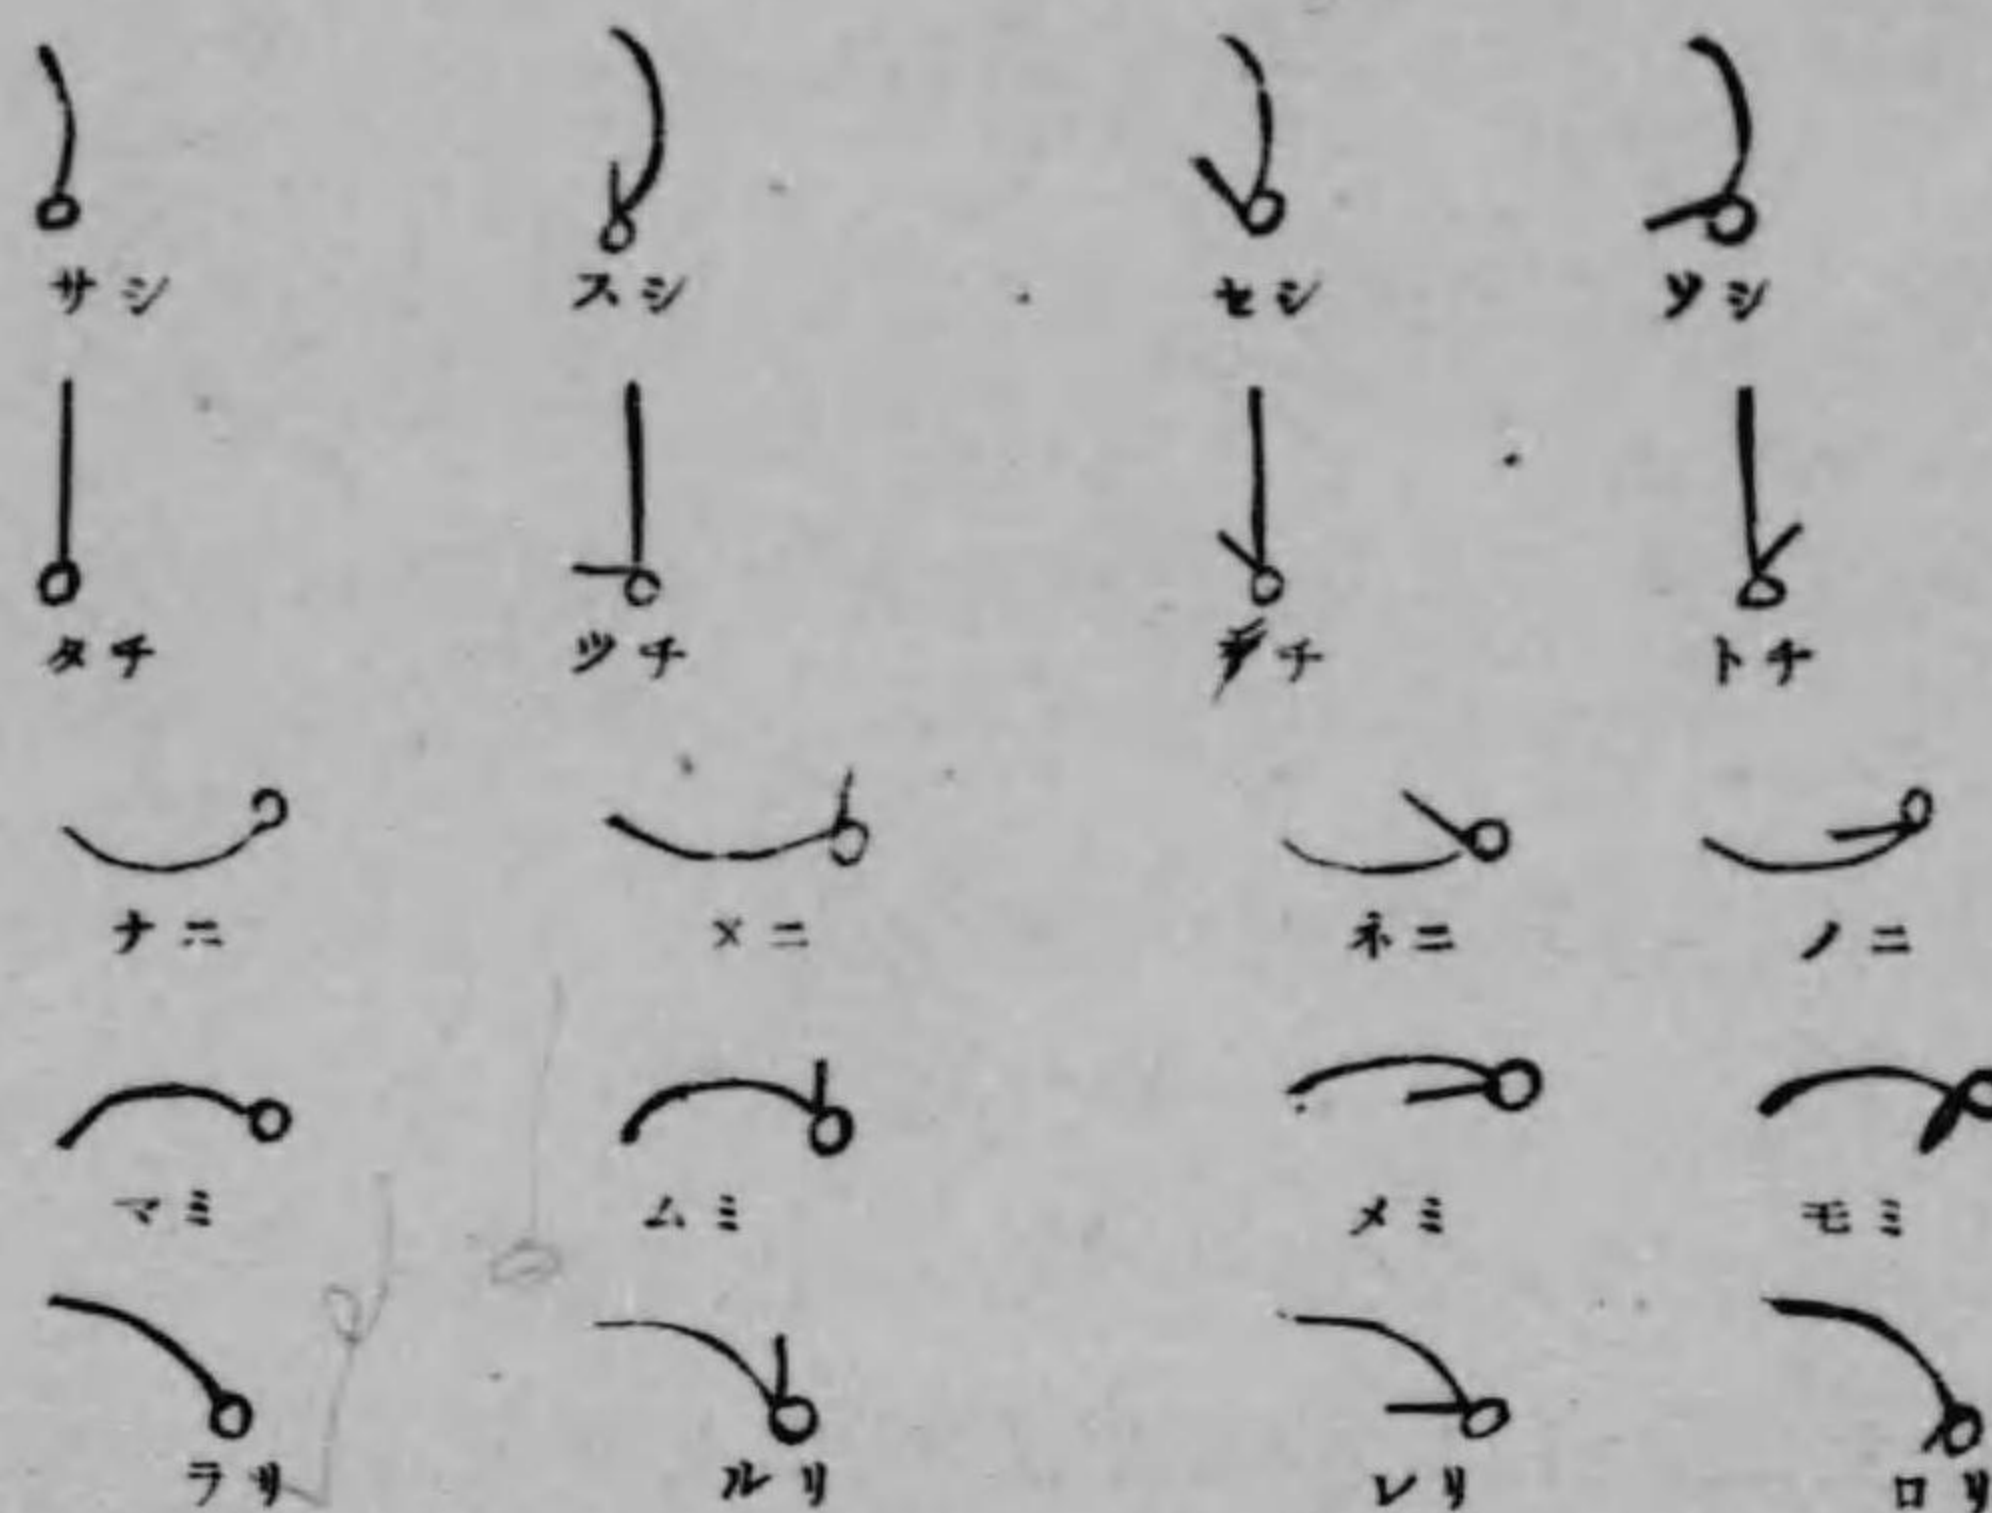 サシ スシ セシ ソシ
タチ ツチ テチ トチ
ナニ ヌニ ネニ ノニ
マミ ムミ メミ モミ
ラリ ルリ レリ ロリ